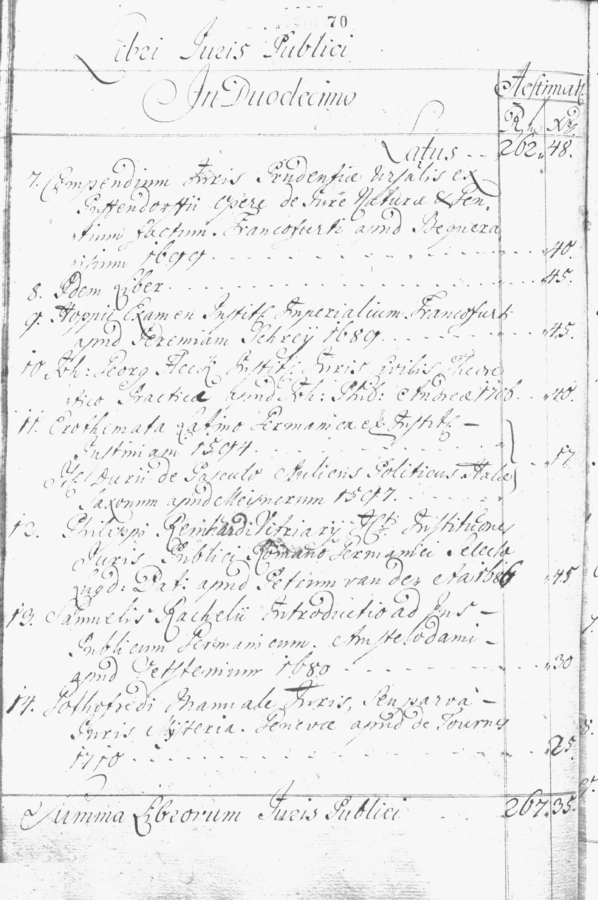 70
Libri Juris Publici
In Duodecimo
Aestimat
R. Xr
Latus - - 262. 48.
7. Compendium Juris Prudentiæ Ursalis ex
Puffendorffii opere de Jure Naturæ & Gen,
tium factum. Francofurti apud Regnera
1699 - - - 40.
8. Idem Liber - - - 45.
9. Hoppii Examen Institt: Imperialium Francofurti
apud Jeremiam Schrey 1689 - - - 45.
10 Joh: Georg Institt: Juris Civilis Theore
tico Practicæ apud Joh: Phil: Andreæ 1706 - 40.
11. Erothemata Latino Germanica ex Institt: -
Justiniani 1594 - - -
de Aulicus Politicus Halæ 17.
Saxonum apud Meisnerum 1597 - - -
12. Philippi Reinhardi Vitriarii Institutiones
Juris Publici Romano Germanici Selectæ
Lugd: Bat: apud Petrum van der Aa 1686 45
13. Samuelis Rachelii Introductio ad Jus -
Publicum Germanicum. Amstelodami -
apud 1680 - - - 30
14. Gothofredi Manuale Juris, seu parva -
Juris Mysteria. Genevæ apud de Tournes
1710 - - - 25.
Summa Librorum Juris Publici - - 267. 35.